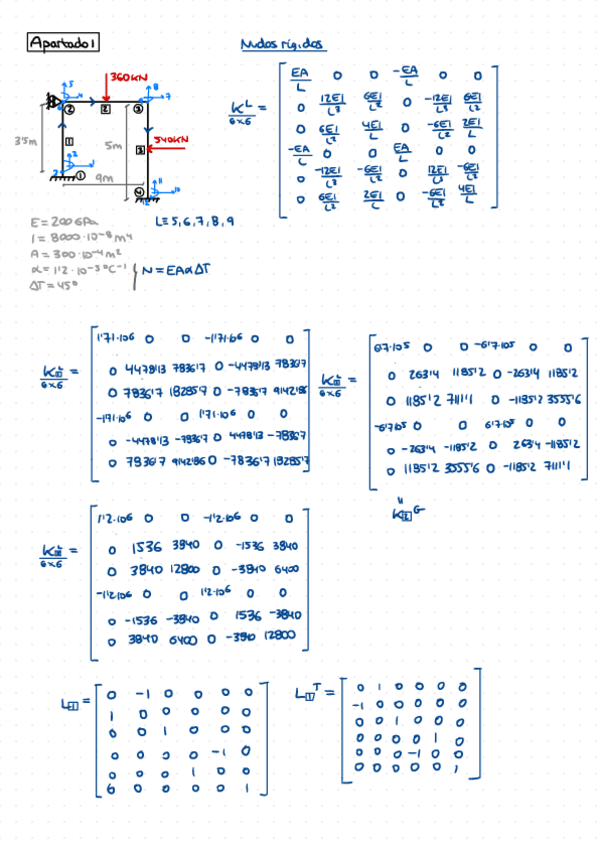 Apartado 1
Nudos rígidos
360KN
540KN
3'5m
5m
9m
E = 200 GPa
I = 8000·10⁻⁸ m⁴
A = 300·10⁻⁴ m²
α = 1'2·10⁻⁵ °C⁻¹
ΔT = 45°
N = EAαΔT
L = 5, 6, 7, 8, 9
K^L 6x6 =
EA/L 0 0 -EA/L 0 0
0 12EI/L³ 6EI/L² 0 -12EI/L³ 6EI/L²
0 6EI/L² 4EI/L 0 -6EI/L² 2EI/L
-EA/L 0 0 EA/L 0 0
0 -12EI/L³ -6EI/L² 0 12EI/L³ -6EI/L²
0 6EI/L² 2EI/L 0 -6EI/L² 4EI/L
6x6 =
1'71·10⁶ 0 0 -1'71·10⁶ 0 0
0 4478'13 7836'7 0 -4478'13 7836'7
0 7836'7 18285'7 0 -7836'7 9142'86
-1'71·10⁶ 0 0 1'71·10⁶ 0 0
0 -4478'13 -7836'7 0 4478'13 -7836'7
0 7836'7 9142'86 0 -7836'7 18285'7
6x6 =
6'7·10⁵ 0 0 -6'7·10⁵ 0 0
0 263'4 1185'2 0 -263'4 1185'2
0 1185'2 7111'1 0 -1185'2 3555'6
-6'7·10⁵ 0 0 6'7·10⁵ 0 0
0 -263'4 -1185'2 0 263'4 -1185'2
0 1185'2 3555'6 0 -1185'2 7111'1
6x6 =
1'2·10⁶ 0 0 -1'2·10⁶ 0 0
0 1536 3840 0 -1536 3840
0 3840 12800 0 -3840 6400
-1'2·10⁶ 0 0 1'2·10⁶ 0 0
0 -1536 -3840 0 1536 -3840
0 3840 6400 0 -3840 12800
L 1 =
0 -1 0 0 0 0
1 0 0 0 0 0
0 0 1 0 0 0
0 0 0 0 -1 0
0 0 0 1 0 0
0 0 0 0 0 1
L 1 ^T =
0 1 0 0 0 0
-1 0 0 0 0 0
0 0 1 0 0 0
0 0 0 0 1 0
0 0 0 -1 0 0
0 0 0 0 0 1